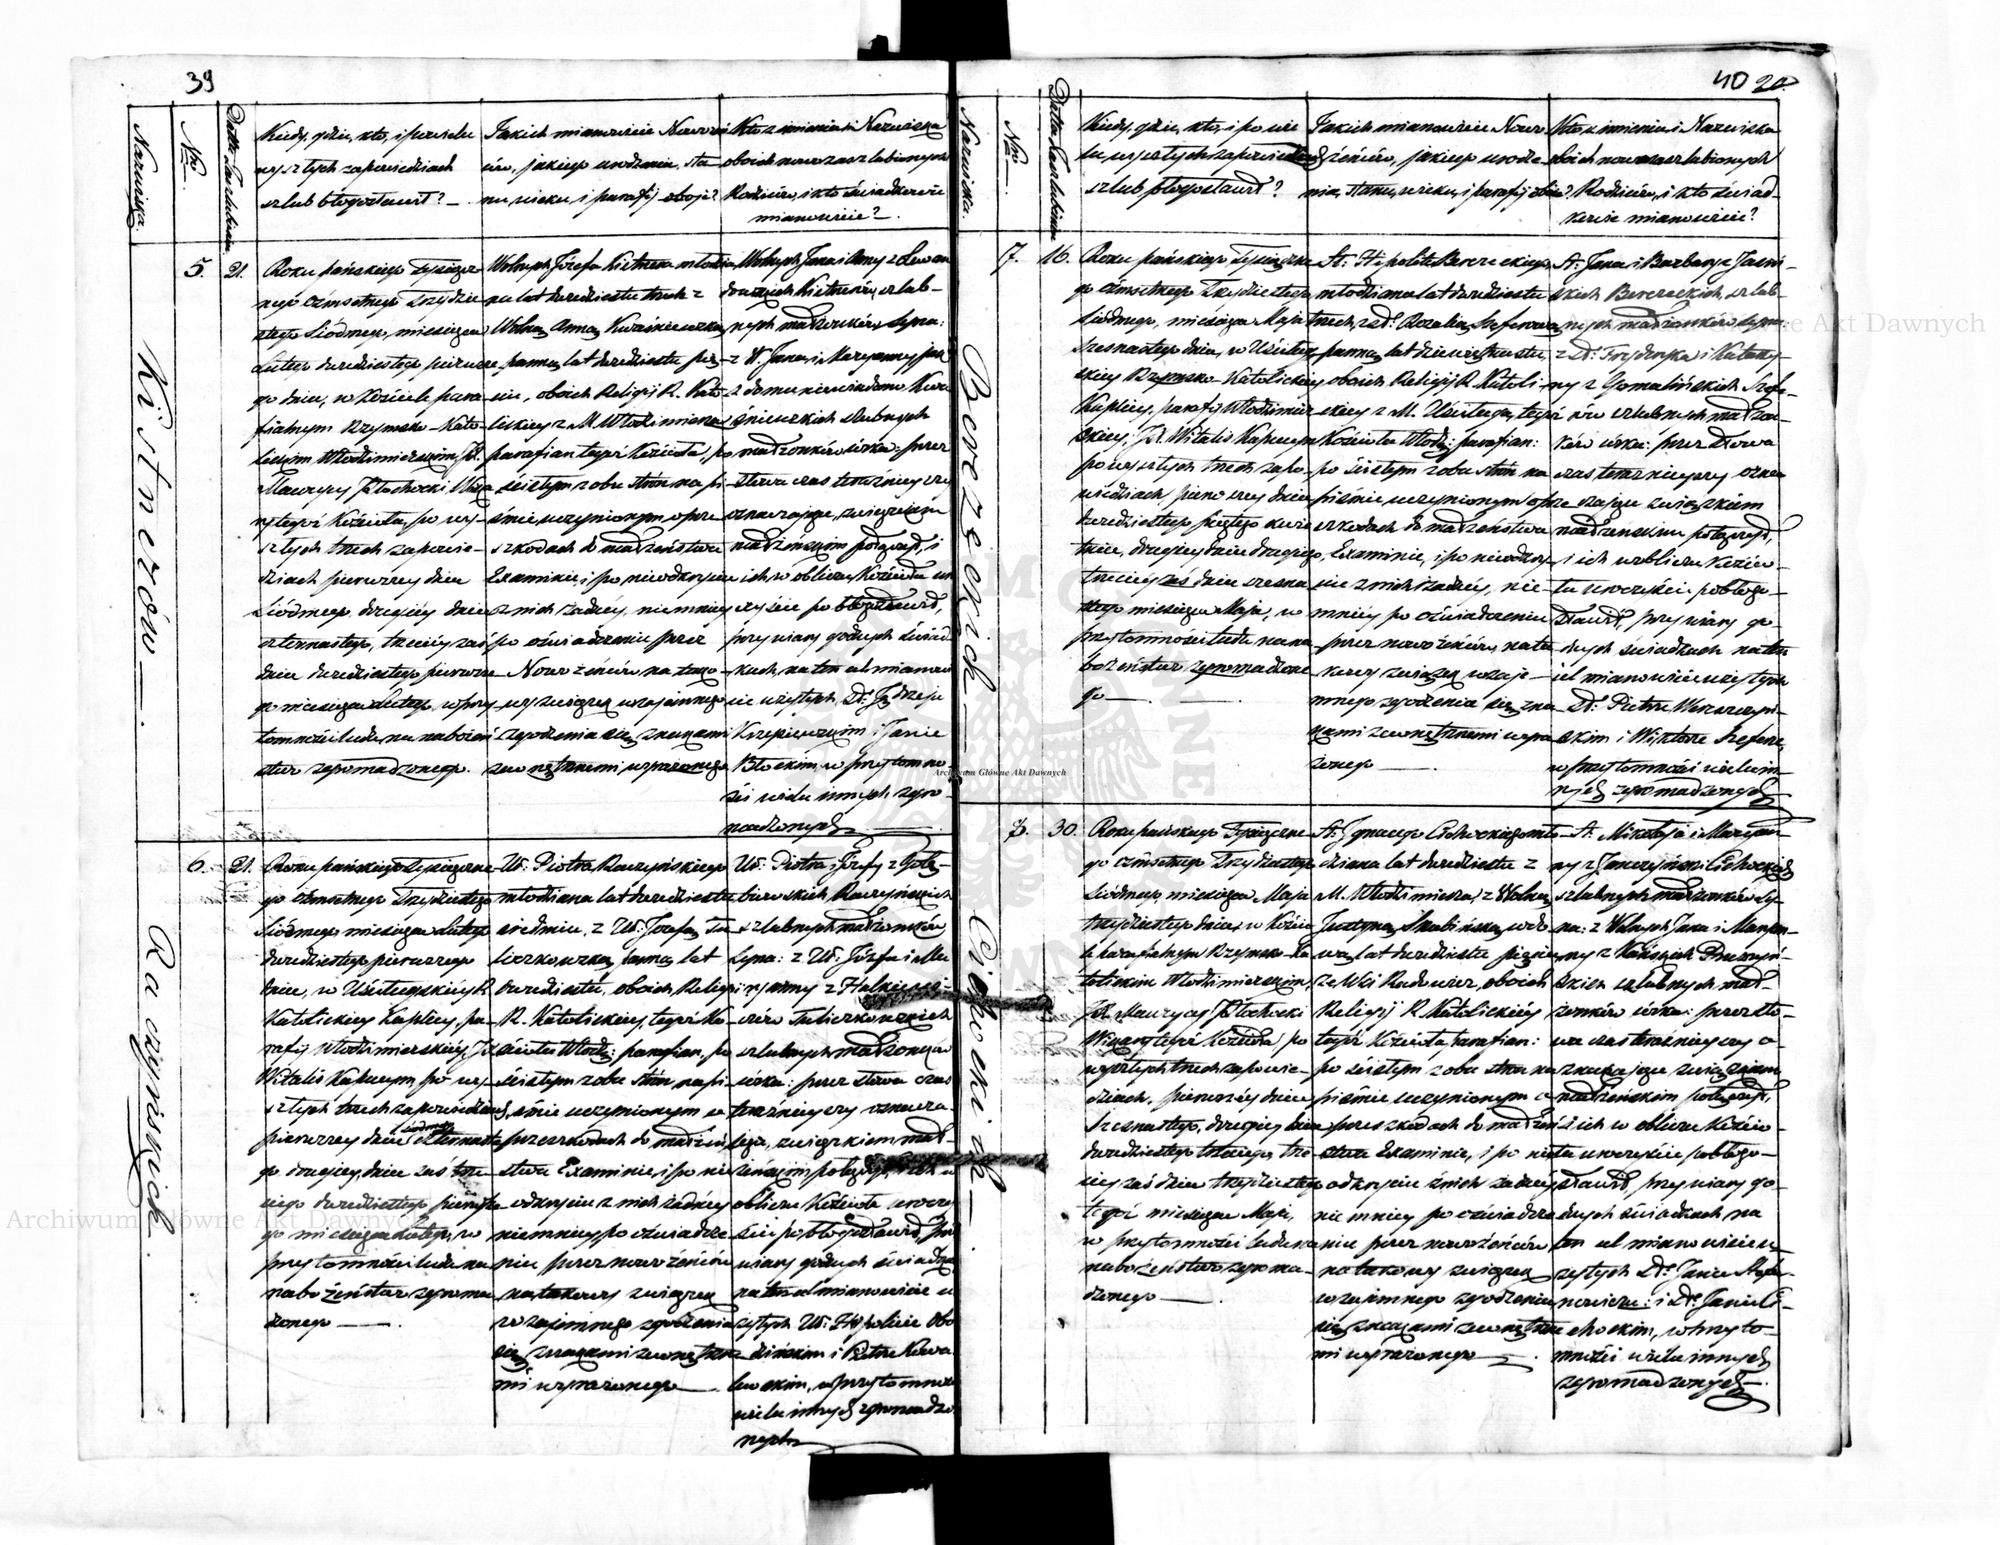 39
Nazwiska.
Nro
Datta Zaślubin
Kiedy, gdzie, kto, i po wielu
wyszłych zapowiedziach
szlub błogosławił?
Jakich mianowicie Nowożeń
ców, jakiego urodzenia, sta
nu wieku i parafij oboje?
Kto z imienia i Nazwiska
oboich nowozaszlubionych
Rodziców, i kto świadkowie
mianowicie?
Kistnerów
5.
21.
Roku pańskiego Tysiącz
nego Ośmsetnego Trzydzie
stego Siódmego, miesiąca
Lutego dwudziestego pierwsze
go dnia, w Kościele para
fialnym Rzymsko-Kato
lickim Włodzimierskim JX.
Maurycy Płochocki Wika
ry tegoż Kościoła, po wy-
szłych trzech zapowie-
dziach pierwszey dnia
Siódmego drugiey dnia
czternastego, trzeciey zaś
dnia dwudziestego pierwsze
go miesiąca Lutego, w przy
tomności ludu na nabożeń
stwo zgromadzonego.
Wolnych Józefa Kistnera młodzia
na lat dwadzieścia trzech z
Wolną Anną Kwaśnieuską
panną lat dwadzieścia
nie, oboich Religij R. Kato
lickiey z M. Włodzimierza
parafian tegoż Kościoła, po
ścisłym z obu strón na pi
śmie uczynionym o prze
szkodach do małżeństwa
Examinie i po nieodkryciu
z nich żadney, niemniey
po oświadczeniu przez
Nowożeńców na tako
wy związek wzajemnego
zgodzenia się, znakami
zewnętrznemi wyrażonego
Wolnych Jana i Anny z Lewan
dowskich Kistnerów, szlub-
nych małżonków syna:
z W. Jana i Maryanny
z domu niewiadomo Kwa
śnieuskich szlubnych
małżonków córka: przez
słowa czas teraźnieyszy
oznaczające, związkiem
małżeńskim połączył, i
ich w obliczu Kościoła uro
czyście pobłogosławił,
przy wiary godnych świad
kach, na ten cel mianowi
cie użytych, Dd: Jędrzeju
Krzepiewskim i Janie
Błockim, w przytomno
ści wielu innych zgro-
madzonych
Raczyńskich
6.
21.
Roku pańskiego Tysiączne
go Ośmsetnego Trzydziestego
Siódmego miesiąca Lutego
dwudziestego pierwszego
dnia, w Uściługskiey R.
Katolickiey Kaplicy, pa
rafij Włodzimierskiey, JX
Witalis Kapucyn po wy
szłych trzech zapowiedziach,
pierwszey dnia siódmego
go drugiey, dnia zaś trze
ciego dwudziestego pierwsze
go miesiąca Lutego, w
przytomności ludu na
nabożeństwo zgroma
dzonego
Ur: Piotra Raczyńskiego
młodziana lat dwadzieścia
siedmiu, z Ur: Józefą Tu
liczkowską panną lat
dwadzieścia, oboich Religij
R. Katolickiey, tegoż Ko
ścioła Włodz: parafian, po
ścisłym z obu strón na pi
śmie uczynionym o
przeszkodach do małżeń
stwa Examinie, i po nie
odkryciu z nich żadney
niemniey po oświadcze
niu przez nowożeńców
na takowy związek
wzajemnego zgodzenia
się, znakami zewnętrzne
mi wyrażonego
Ur: Piotra i Józefy z Gołę
biewskich Raczyńskich
szlubnych małżonków
syna: z Ur: Józefa i Ma
ryanny z Halkiewi-
czów Tuliczkowskich
szlubnych małżonków
córka: przez słowa czas
teraźnieyszy oznacza-
jące, związkiem mał
żeńskim połączył, i ich w
obliczu Kościoła uroczy
ście pobłogosławił, przy
wiary godnych świadkach
na ten cel mianowicie u
żytych Ur: Hipolicie Obo
dzińskim i Piotrze Kowa
lewskim, w przytomności
wielu innych zgromadzo
nych
40 20.
Nazwiska.
Nro
Datta Zaślubin
Kiedy, gdzie, kto, i po wie
lu wyszłych zapowiedziach
szlub błogosławił?
Jakich mianowicie Nowo
żeńców, jakiego urodze-
nia, stanu, wieku, i parafij oboje?
Kto, z imienia i Nazwiska
oboich nowozaszlubionych
Rodziców, i kto świad-
kowie mianowicie?
Berezeckich
7.
16.
Roku pańskiego Tysiączne
go Ośmsetnego Trzydziestego
Siódmego, miesiąca Maja
szesnastego dnia, w Uściług
skiey Rzymsko-Katolickiey
Kaplicy, parafij Włodzimier
skiey, JX. Witalis Kapucyn
po wyszłych trzech zapo-
wiedziach, pierwszey dnia
dwudziestego piątego kwie
tnia, drugiey dnia drugiego,
trzeciey zaś dnia szesna
stego miesiąca Maja, w
przytomności ludu na na
bożeństwo zgromadzone
go
St: Hipolita Berezeckiego
młodziana lat dwadzieścia
trzech, z Dd: Rozalią Szeferową
panną lat dziewiętnastu,
oboich Religij R. Katoli-
ckiey z M. Uściługa, tegoż
Kościoła Włodz: parafian:
po ścisłym z obu strón na
piśmie uczynionym o prze
szkodach do małżeństwa
Examinie, i po nieodkry-
ciu z nich żadney, nie-
mniey po oświadczeniu
przez nowożeńców na ta
kowy związek wzaje-
mnego zgodzenia się, zna
kami zewnętrznemi wyra
żonego
St: Jana i Barbary z Jasiń-
skich Berezeckich, szlub-
nych małżonków syna:
z Dd: Frydryka i Katarzy-
ny z Gomulińskich Szefe-
rów szlubnych małżon-
ków córka: przez słowa
czas teraźnieyszy ozna
czające związkiem
małżeńskim połączył,
i ich w obliczu Kościo-
ła uroczyście pobłogo-
sławił, przy wiary go-
dnych świadkach na ten
cel mianowicie użytych
Dd: Piotrze Wawrzyń-
skim i Wiktorze Szeferze,
w przytomności wielu in-
nych zgromadzonych
Cichockich
8.
30.
Roku pańskiego Tysiączne
go Ośmsetnego Trzydziestego
Siódmego miesiąca Maja
trzydziestego dnia, w Kościo
le parafialnym Rzymsko-Ka
tolickim Włodzimierskim,
JX. Maurycy Płochocki
Wikary tegoż Kościoła, po
wyszłych trzech zapowie-
dziach, pierwszey dnia
szesnastego, drugiey dnia
dwudziestego trzeciego, trze
ciey zaś dnia trzydziestego
tegoż miesiąca Maja,
w przytomności ludu na
nabożeństwo zgroma-
dzonego
St: Ignacego Cichockiego mło-
dziana lat dwadzieścia z
M. Włodzimierza, z Wolną
Justyną Skalińską wdo
wą lat dwadzieścia pięciu
ze Wsi Rudowicz, oboich
Religij R. Katolickiey
tegoż Kościoła parafian:
po ścisłym z obu strón na
piśmie uczynionym o
przeszkodach do małżeń
stwa Examinie, i po nie
odkryciu z nich żadney
niemniey po oświadcze
niu przez nowożeńców
na takowy związek
wzajemnego zgodzenia
się, znakami zewnętrzne
mi wyrażonego
St: Mikołaja i Maryan
ny z Janczyńskich Cichockich
szlubnych małżonków Sy-
na: z Wolnych Jana i Maryan-
ny z
skich szlubnych mał-
żonków córka: przez sło-
wa czas teraźnieyszy o-
znaczające związkiem
małżeńskim połączył,
i ich w obliczu Kościo-
ła uroczyście pobłogo-
sławił, przy wiary go-
dnych świadkach na
ten cel mianowicie u-
żytych Dd: Janie Stefa-
nowiczu: i Dd: Janie Ci-
chockim, w przyto-
mności wielu innych
zgromadzonych
Archiwum Główne Akt Dawnych
Archiwum Główne Akt Dawnych
Archiwum Główne Akt Dawnych